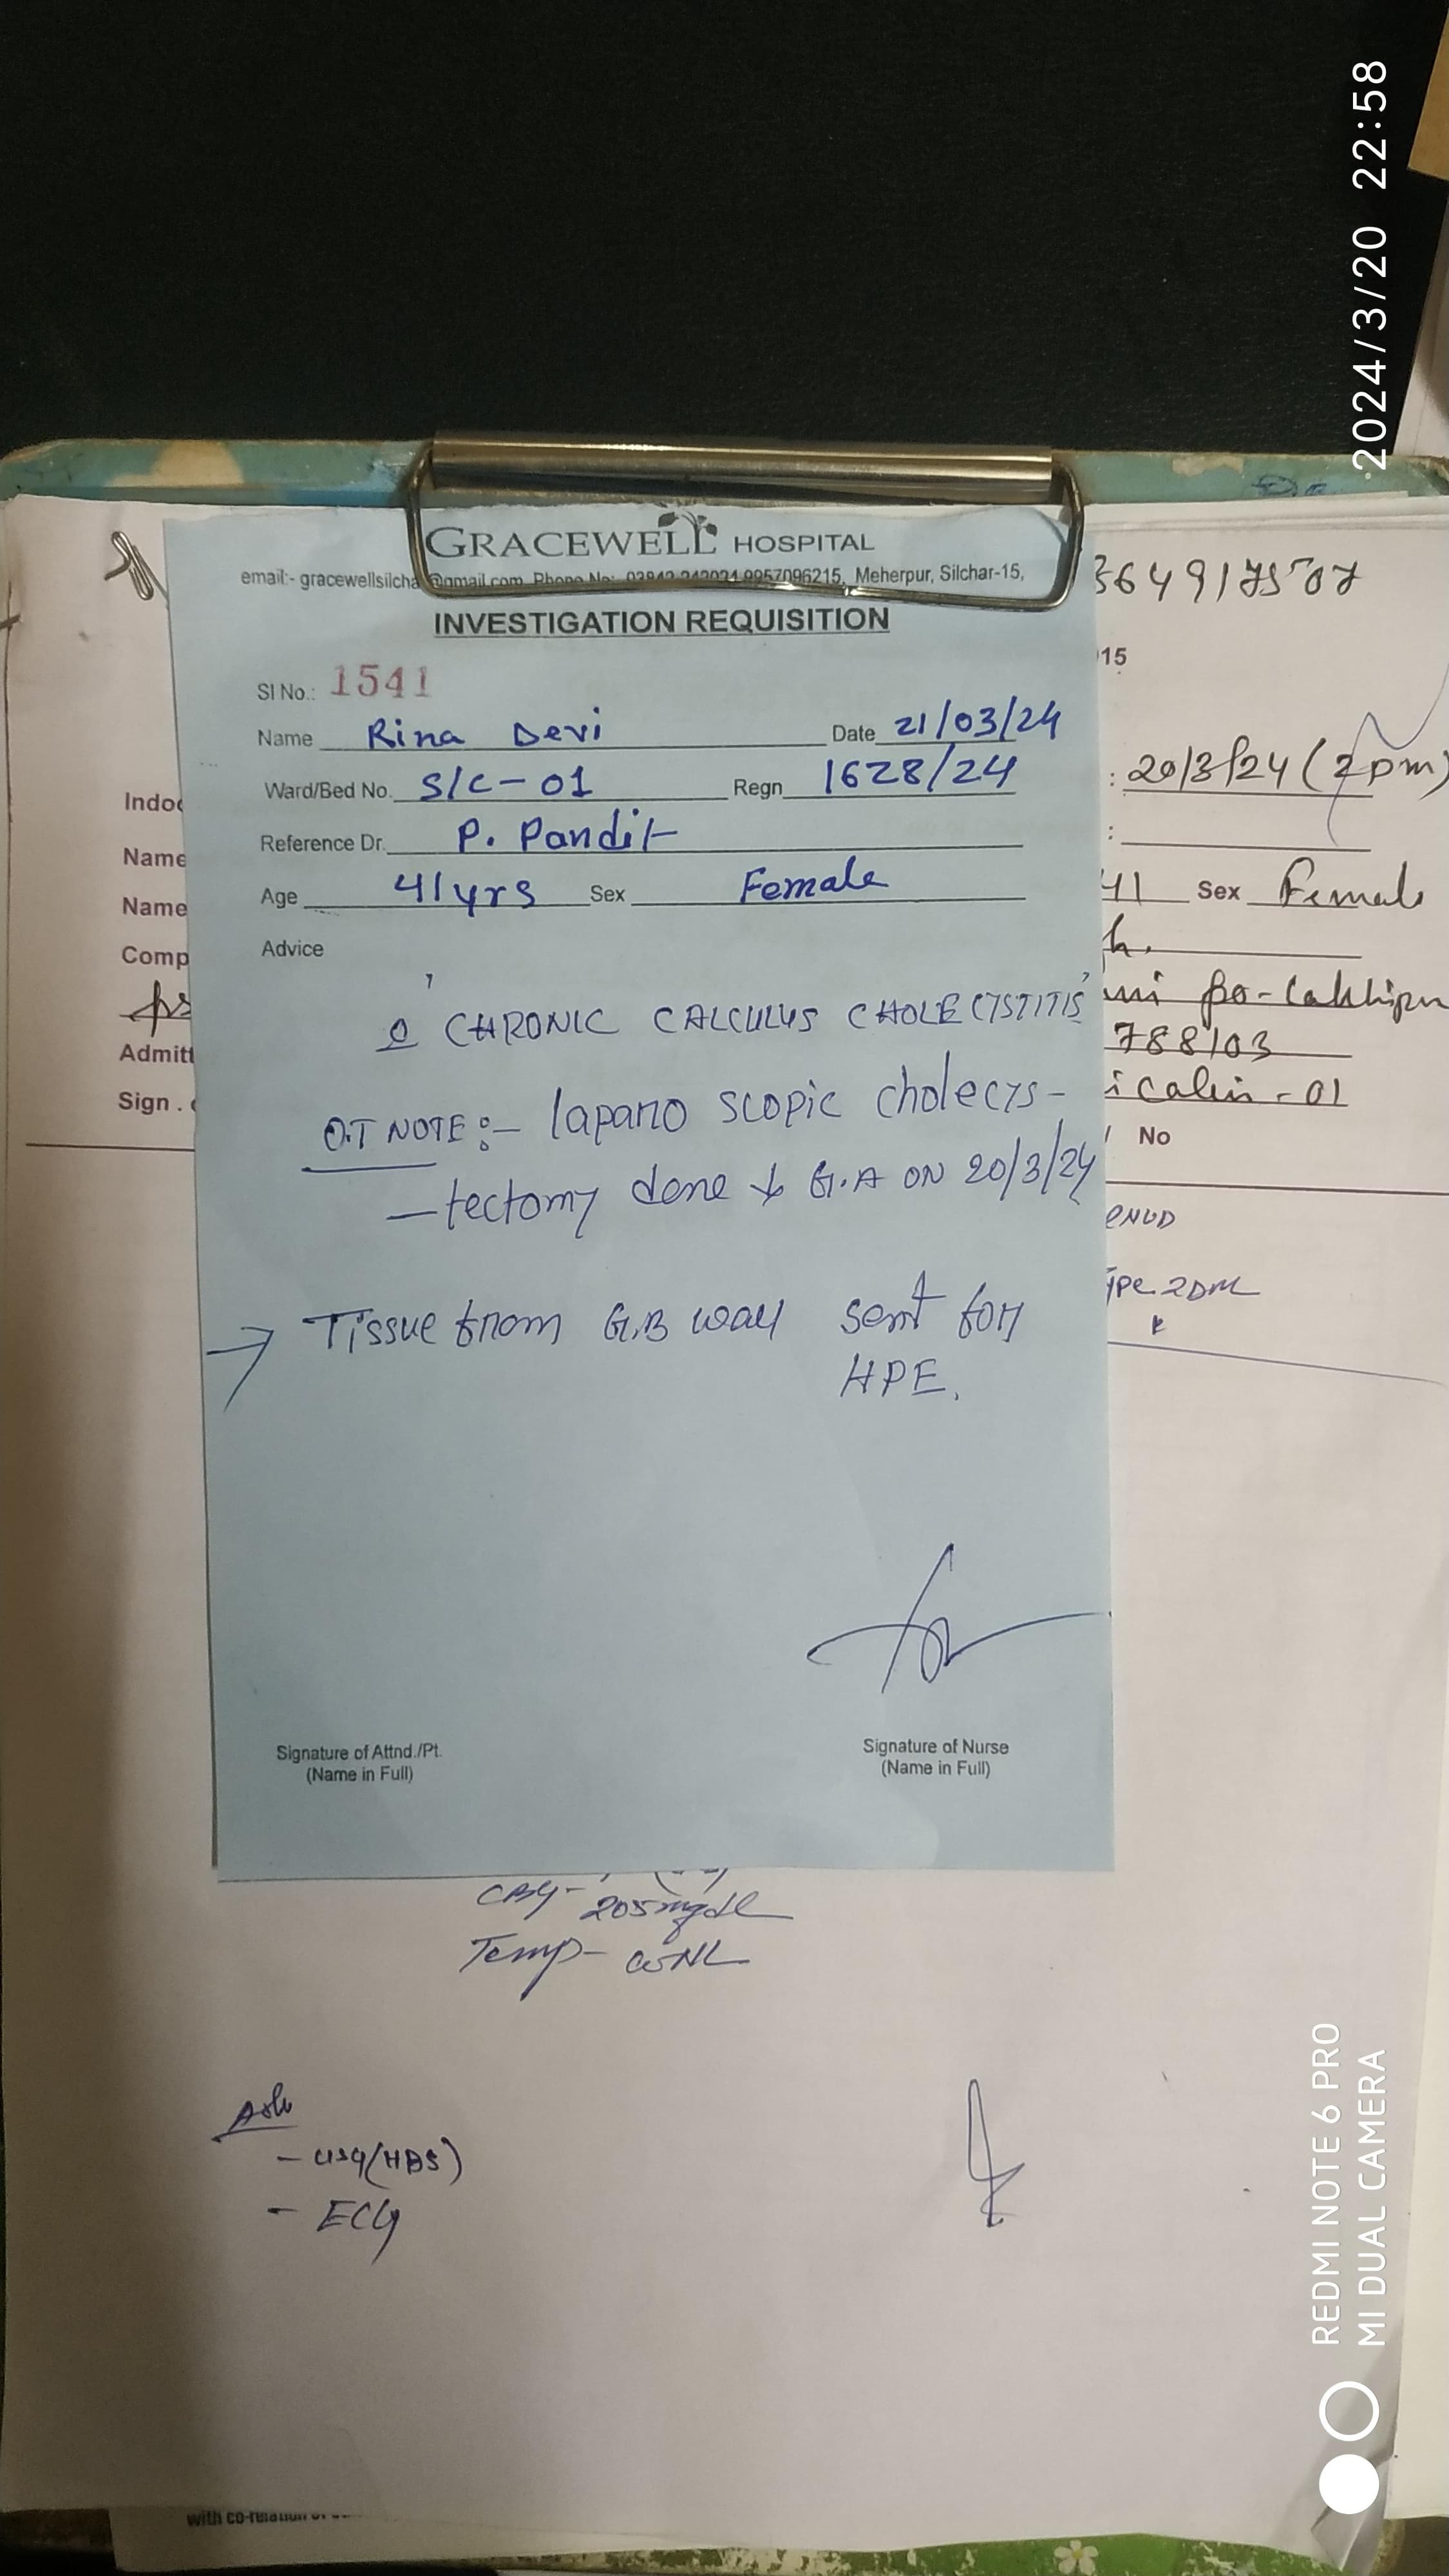 2024/3/20 22:58
GRACEWELL HOSPITAL
email:- gracewellsilcha @gmail.com Phone No: 03842-242024, 9957096215, Meherpur, Silchar-15,
INVESTIGATION REQUISITION
Sl No.: 1541
Name Rina Devi Date 21/03/24
Ward/Bed No. S/C-01 Regn 1628/24
Reference Dr. P. Pandit
Age 41yrs Sex Female
Advice
CHRONIC CALCULUS CHOLECYSTITIS
O.T NOTE:- laparo scopic cholecys-
-tectomy done G.A ON 20/3/24
→ Tissue from G.B wall sent for
HPE.
Signature of Attnd./Pt.
(Name in Full)
Signature of Nurse
(Name in Full)
64917507
15
: 20/3/24 (2pm)
:
41 Sex Female
788103
No
Indo
Name
Name
Comp
Admitt
Sign .
2DM
CBG- 205mgdl
Temp- WNL
Adv
- USG(HBS)
- ECG
with co-relation
REDMI NOTE 6 PRO
MI DUAL CAMERA